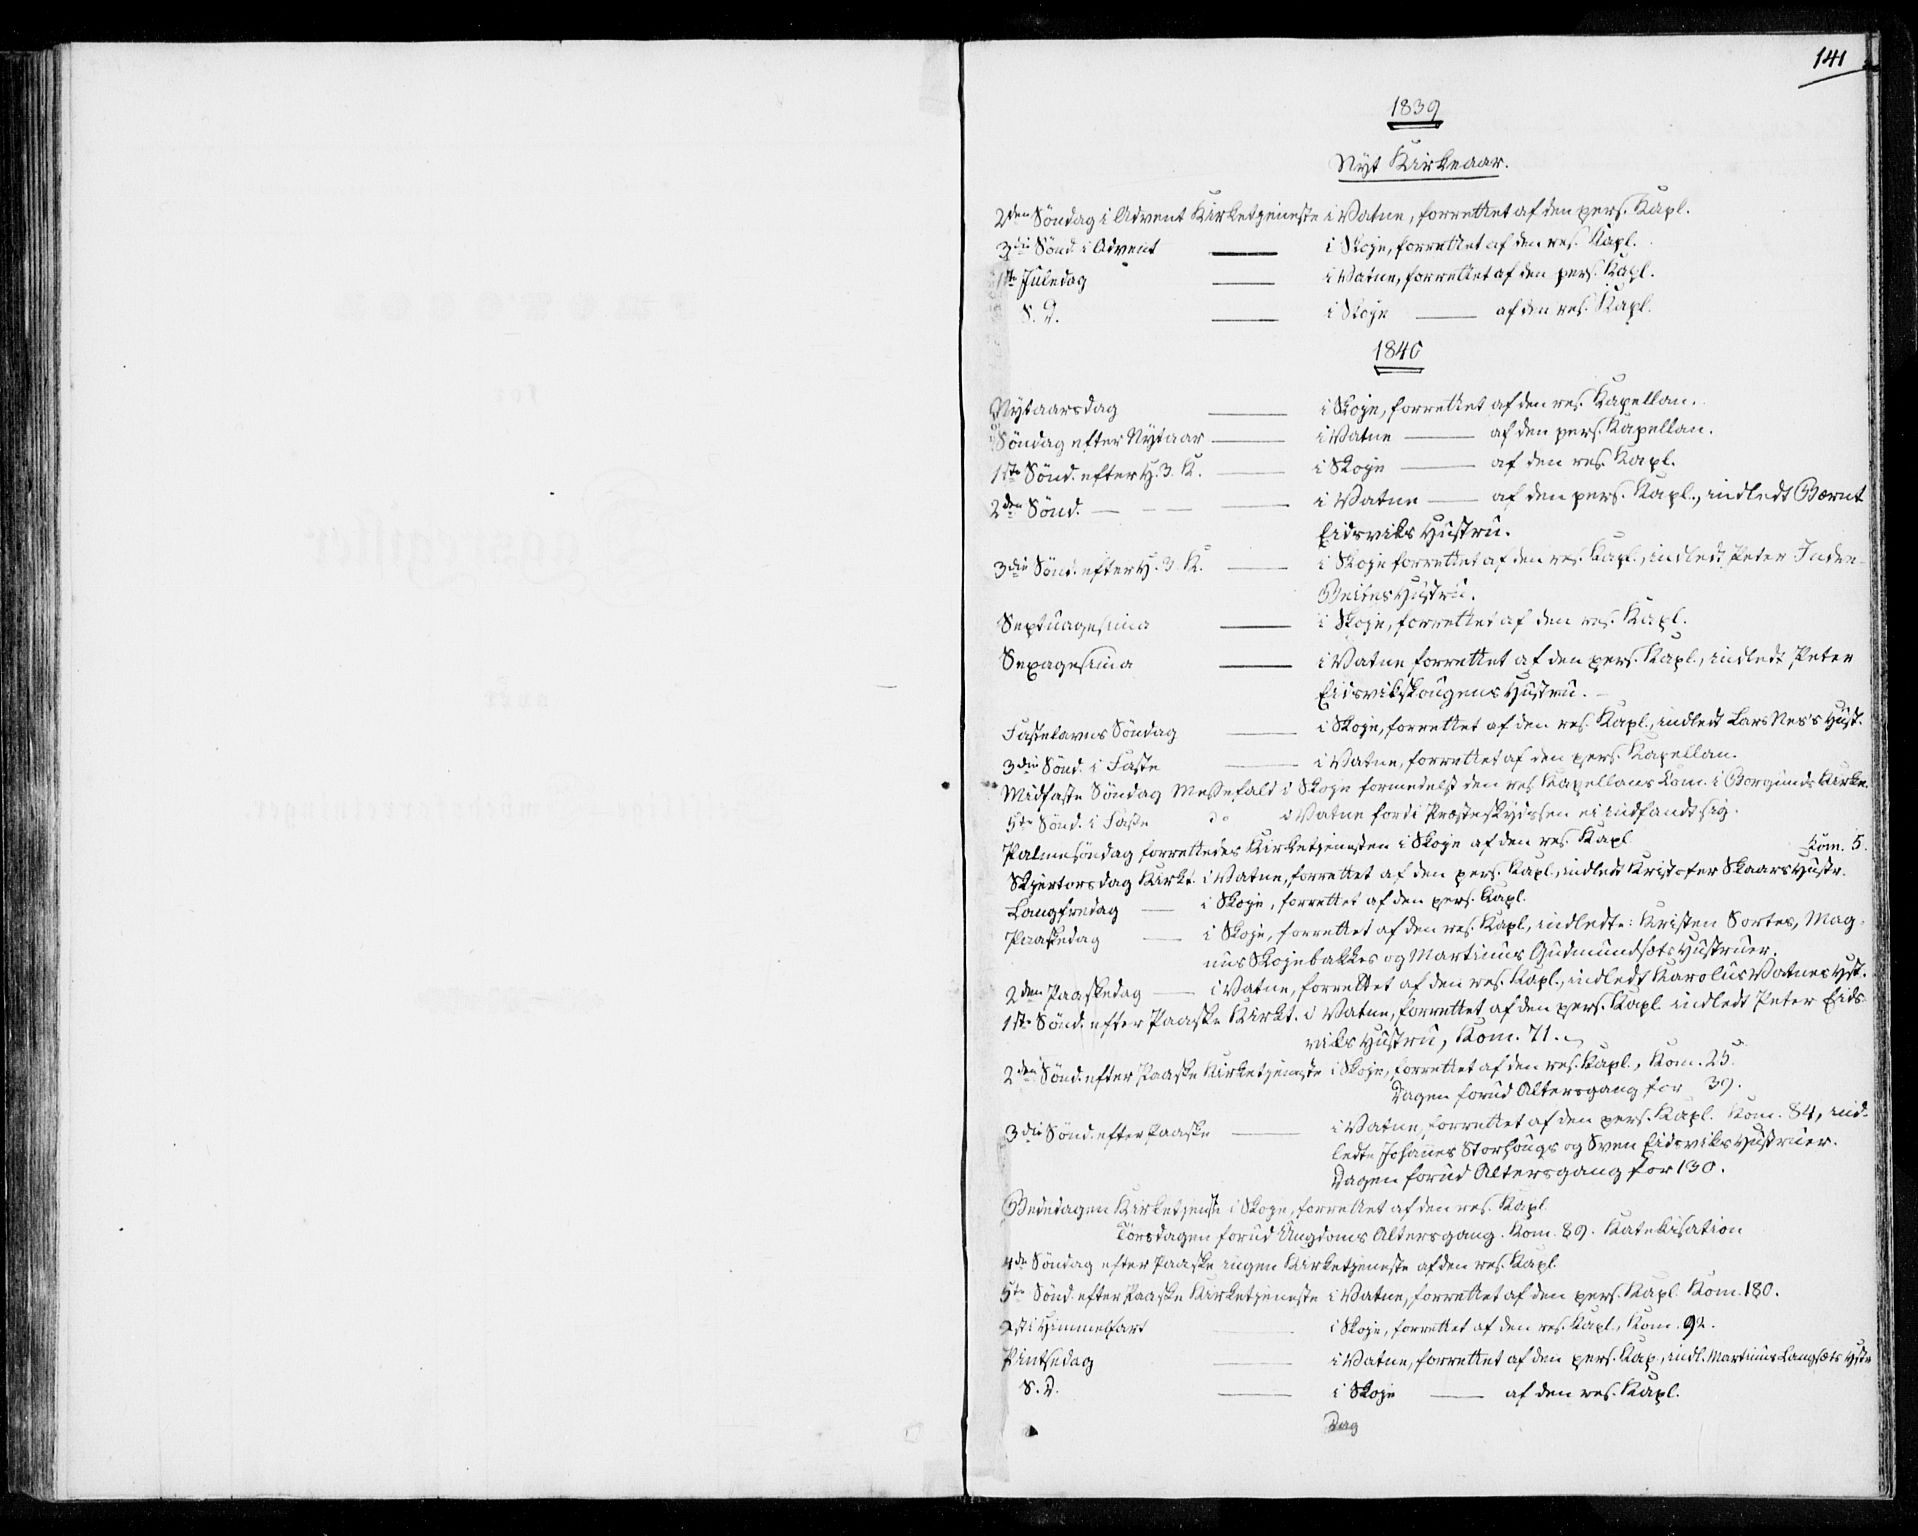 141
1839
Nyt Kirkeaar.
2den Søndag i Advent Kirketjeneste i Vatne, forrettet af den pers. Kapl.
3die Sønd. i Advent —— i Skoje, forrettet af den res. Kapl.
1ste Juledag —— i Vatne, forrettet af den pers. Kapl.
S. D. —— i Skoje —— af den res. Kapl.
1840
Nytaarsdag —— i Skoje, forrettet af den res. Kapellan.
Søndag efter Nytaar —— i Vatne —— af den pers. Kapellan.
1ste Sønd. efter H. 3. K. —— i Skoje —— af den res. Kapl.
2den Sønd. — — — —— i Vatne —— af den pers. Kapl., indledt Bernt
Eidsviks Hustru.
3die Sønd. efter H. 3 K. —— i Skoje forrettet af den res. Kapl., indledt Peter Indre-
Beites Hustru.
Septuagesima —— i Skoje, forrettet af den res. Kapl.
Sexagesima —— i Vatne, forrettet af den pers. Kapl., indledt Peter
Eidsvikskougens Hustru. —
Fastelavns Søndag —— i Skoje, forrettet af den res. Kapl., indledt Lars Nes's Hust.
3die Sønd. i Faste —— i Vatne, forrettet af den pers. Kapellan.
Midfaste Søndag Messefald i Skoje formedelst den res Kapellans Kom. i Borgunds Kirke.
5te Sønd. i Faste do i Vatne fordi Præsteskydsen ei indfandt sig.
Palmesøndag forrettedes Kirketjenesten i Skoje af den res. Kapl Kom. 5.
Skjertorsdag Kirkt. i Vatne, forrettet af den pers. Kapl., indledt Kristofer Skaars Hustr.
Langfredag —— i Skoje, forrettet af den pers. Kapl.
Paaskedag —— i Skoje, forrettet af den res. Kapl, indledte: Kristen Sortes, Mag-
nus Skojebakkes og Martinus Gudmundsæts Hustruer.
2den Paaskedag —— i Vatne, forrettet af den res. Kapl., indledt Karolus Vatnes Hst.
1ste Sønd. efter Paaske Kirkt. i Vatne, forrettet af den pers. Kapl indledt Peter Eids-
viks Hustru, Kom. 71.
2den Sønd. efter Paaske Kirketjeneste i Skoje, forrettet af den res. Kapl., Kom. 25.
Dagen forud Altersgang for 39.
3die Sønd. efter Paaske —— i Vatne, forrettet af den pers. Kapl. Kom. 84, ind-
ledte Johannes Storhougs og Sven Eidsviks Hustruer.
Dagen forud Altersgang for 130.
Bededagen Kirketjenste i Skoje, forrettet af den res. Kapl
Torsdagen forud Ungdoms Altersgang. Kom. 89. Katekisation
4de Søndag efter Paaske ingen Kirketjeneste af den res. Kapl.
5te Sønd. efter Paaske Kirketjeneste i Vatne, forrettet af den pers. Kapl Kom. 180.
Kristi Himmelfart —— i Skoje, forrettet af den res. Kapl., Kom. 92.
Pintsedag —— i Vatne, forrettet af den pers. Kap., indl. Martinus Langsæts Hstr
S. D. —— i Skoje —— af den res. Kapl.
Dag